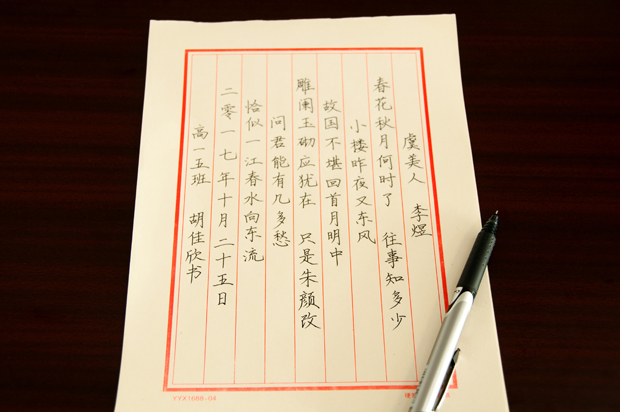 虞美人 李煜
春花秋月何时了 往事知多少
小楼昨夜又东风
故国不堪回首月明中
雕阑玉砌应犹在 只是朱颜改
问君能有几多愁
恰似一江春水向东流
二零一七年十月二十五日
高一五班 胡佳欣书
YYX1668-04